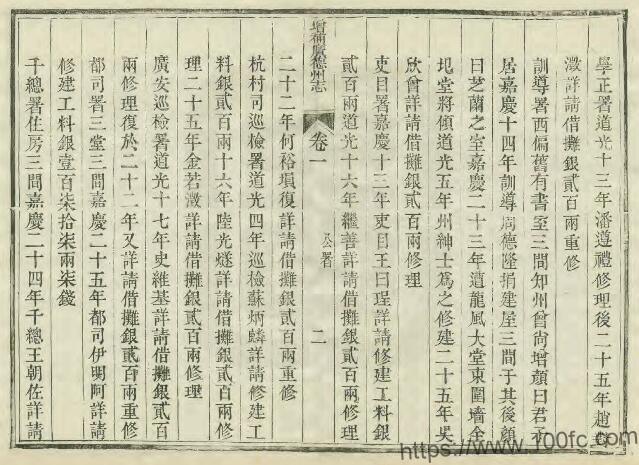 學正署道光十三年潘遵禮修理後二十五年趙
澂詳請借攤銀貳百兩重修
訓導署西偏舊有書室三間知州曾尚增顏曰君子
居嘉慶十四年訓導周德隆捐建屋三間于其後顏
曰芝蘭之室嘉慶二十三年遭龍風大堂東圍墻全
圮堂將傾道光五年州紳士爲之修建二十五年吳
欣曾詳請借攤銀貳百兩修理
吏目署嘉慶十三年吏目王曰珵詳請修建工料銀
貳百兩道光十六年繼善詳請借攤銀貳百兩修理
增補廣德州志
卷一
公署
二
二十二年何裕塤復詳請借攤銀貳百兩重修
杭村司巡檢署道光四年巡檢蘇炳麟詳請修建工
料銀貳百兩十六年陸光燧詳請借攤銀貳百兩修
理二十五年金若澂詳請借攤銀貳百兩修理
廣安巡檢署道光十七年史維基詳請借攤銀貳百
兩修理復於二十二年又詳請借攤銀貳百兩重修
都司署三堂三間嘉慶二十五年都司伊明阿詳請
修建工料銀壹百柒拾柒兩柒錢
千總署住房三間嘉慶二十四年千總王朝佐詳請
https://www.100fc.com